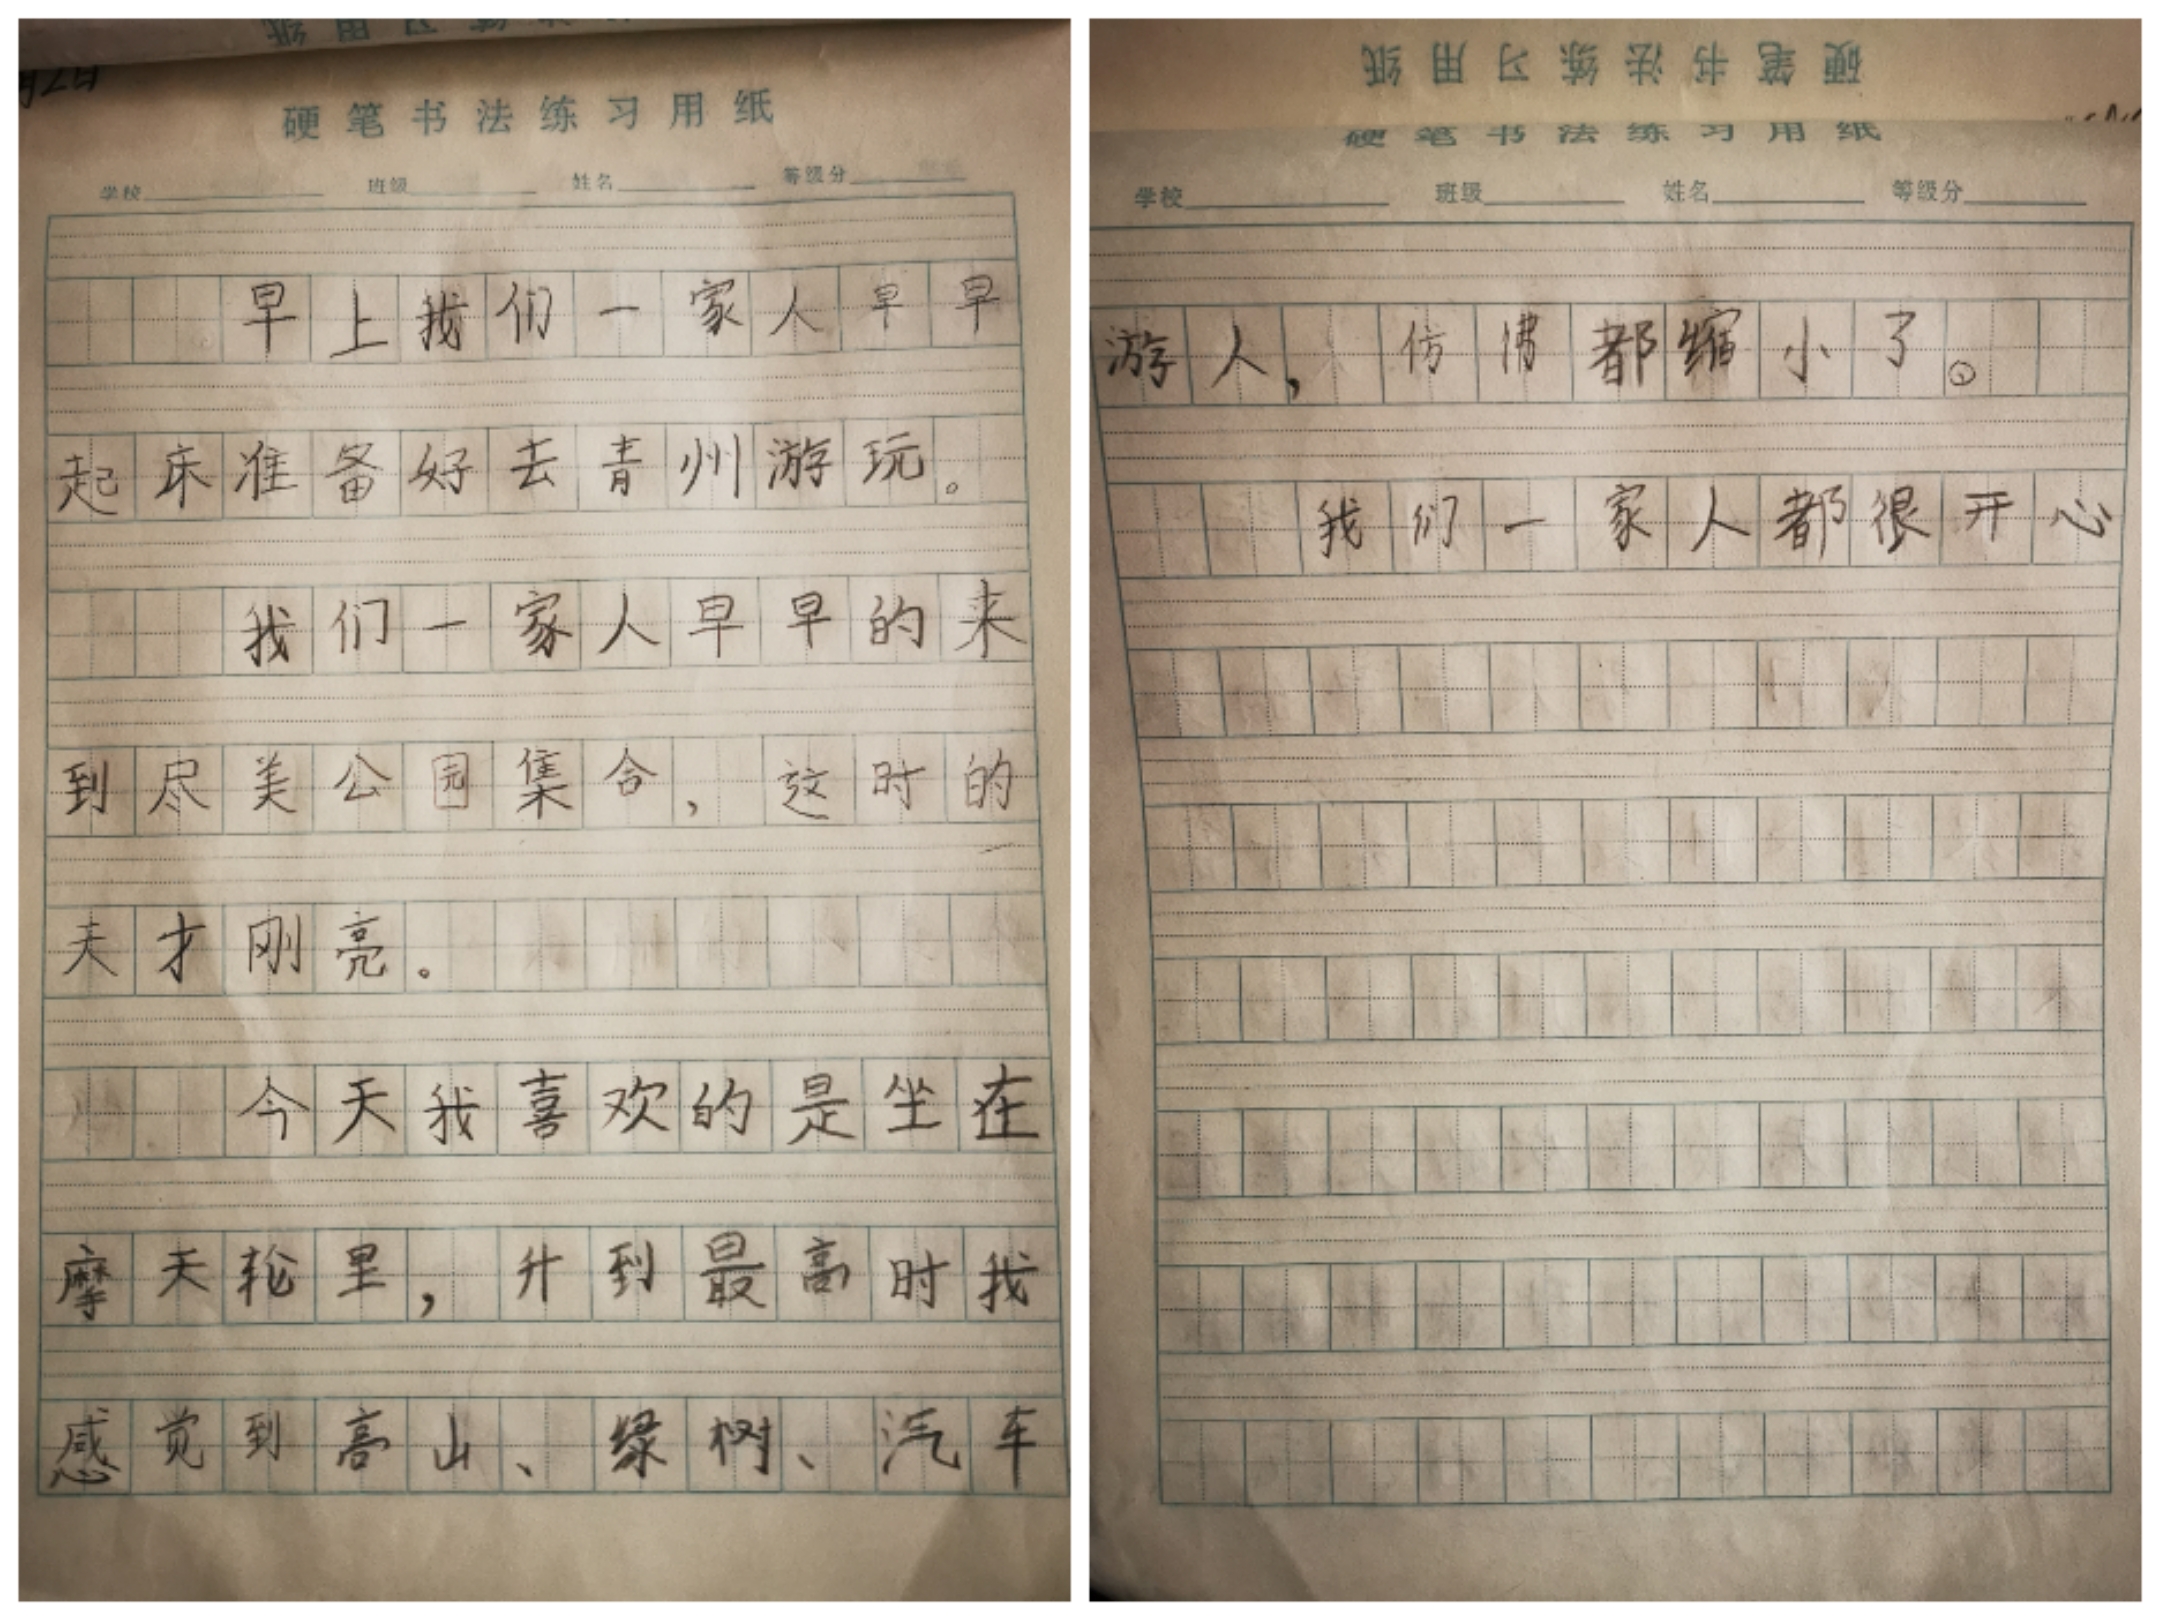 硬笔书法练习用纸
学校 班级 姓名 等级分
早上我们一家人早早
起床准备好去青州游玩。
我们一家人早早的来
到尽美公园集合，这时的
天才刚亮。
今天我喜欢的是坐在
摩天轮里，升到最高时我
感觉到高山、绿树、汽车
硬笔书法练习用纸
硬笔书法练习用纸
学校 班级 姓名 等级分
游人，仿佛都缩小了。
我们一家人都很开心